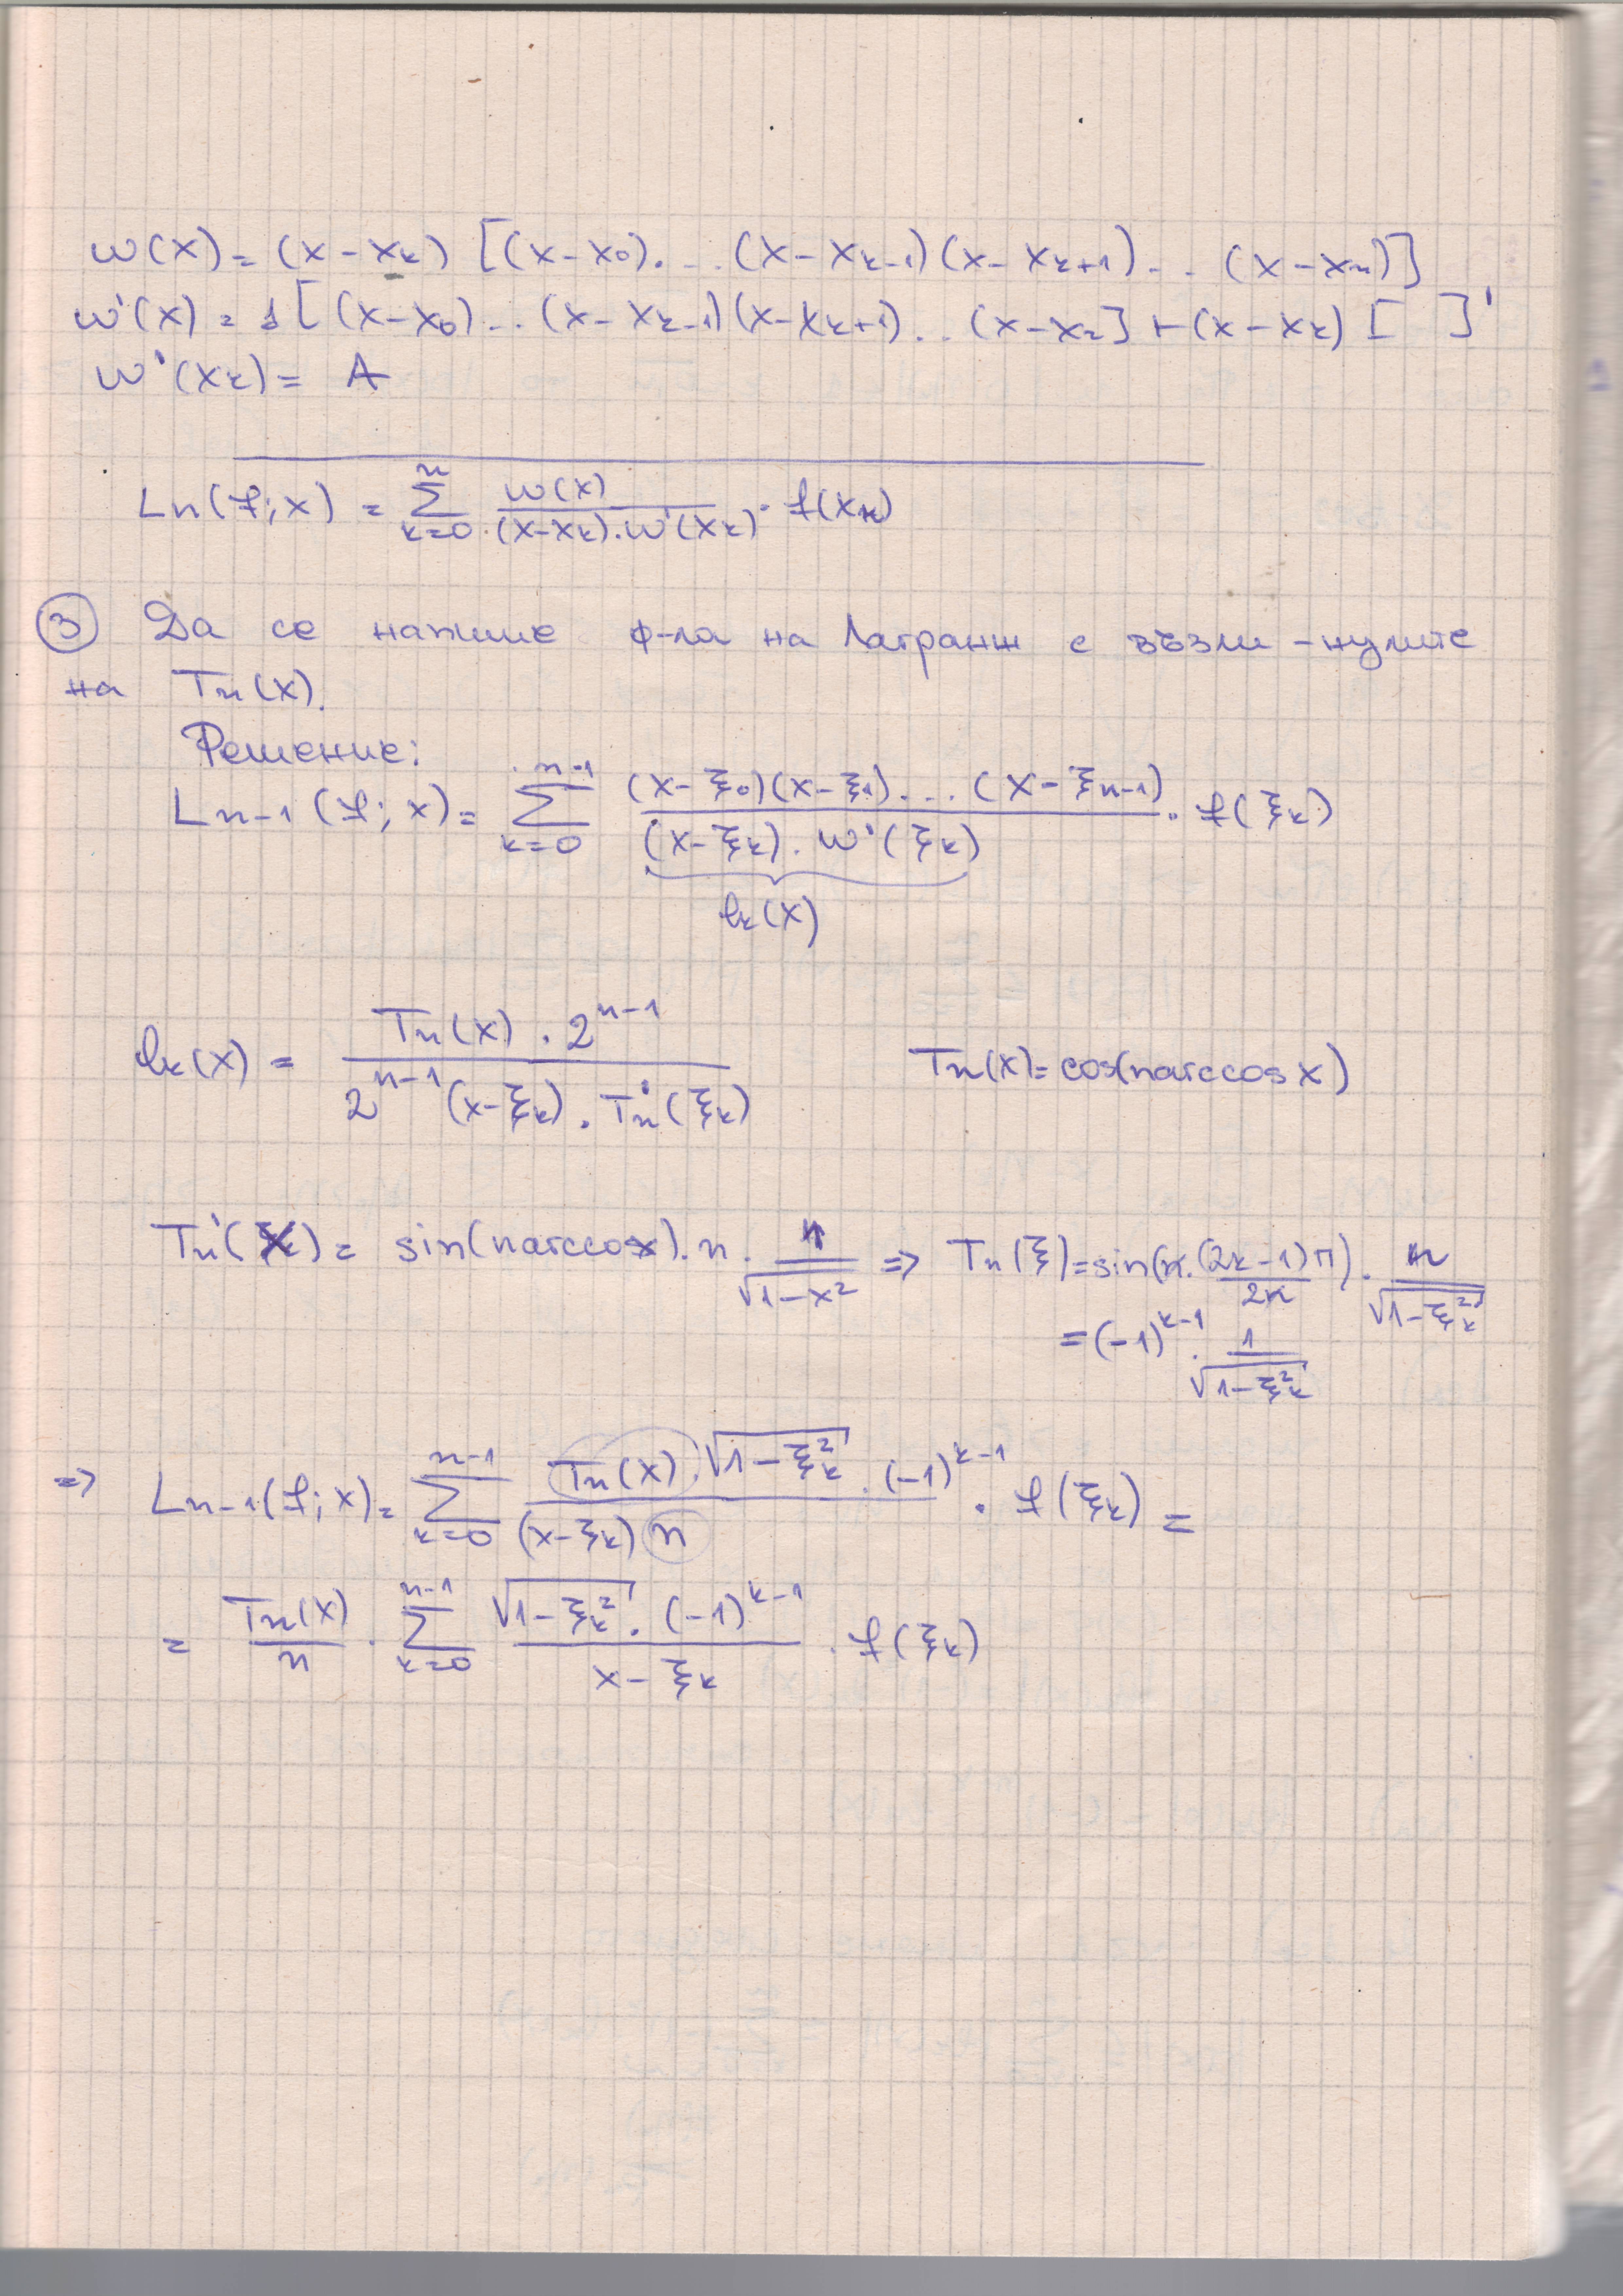 ω(x) = (x - x_k) [(x - x_0). ... (x - x_{k-1})(x - x_{k+1}) ... (x - x_n)]
ω'(x) = 1[(x - x_0) ... (x - x_{k-1})(x - x_{k+1}) ... (x - x_n] + (x - x_k) [ ]'
ω'(x_k) = A
L_n(f; x) = \sum_{k=0}^{n} \frac{ω(x)}{(x - x_k).ω'(x_k)} . f(x_k)
③ Да се напише ф-ла на Лагранж с възли - нулите
на T_n(x).
Решение:
L_{n-1}(f; x) = \sum_{k=0}^{n-1} \frac{(x - ξ_0)(x - ξ_1). ... (x - ξ_{n-1})}{(x - ξ_k). ω'(ξ_k)} . f(ξ_k)
l_k(x)
l_k(x) = \frac{T_n(x) . 2^{n-1}}{2^{n-1}(x - ξ_k) . T_n'(ξ_k)} T_n(x) = cos(n arccos x)
T_n'(x) = sin(n arccos x). n . \frac{1}{\sqrt{1 - x^2}} => T_n(ξ) = sin(n. \frac{(2k-1)π}{2n}) . \frac{n}{\sqrt{1 - ξ_k^2}}
= (-1)^{k-1} . \frac{1}{\sqrt{1 - ξ_k^2}}
=> L_{n-1}(f; x) = \sum_{k=0}^{n-1} \frac{T_n(x) . \sqrt{1 - ξ_k^2} . (-1)^{k-1}}{(x - ξ_k) n} . f(ξ_k) =
= \frac{T_n(x)}{n} . \sum_{k=0}^{n-1} \frac{\sqrt{1 - ξ_k^2} . (-1)^{k-1}}{x - ξ_k} . f(ξ_k)